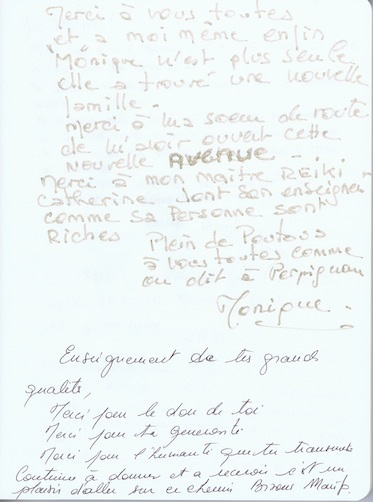 Merci à vous toutes
et a moi même enfin
"Monique n'est plus seule
elle a trouvé une nouvelle
famille.
Merci à ma soeur de route
de m'avoir ouvert cette
nouvelle AVENUE -.
Merci à mon maître REIKI -
Catherine dont son enseignement
comme sa Personne sont
Riches Plein de Poutous
à vous toutes comme
on dit à Perpignan
Monique -
Enseignement de très grande
qualité,
Merci pour le don de toi
Merci pour ta générosité
Merci pour l'humanité que tu transmets
Continue à donner et a recevoir c'est un
plaisir d'aller sur ce chemin Bisous